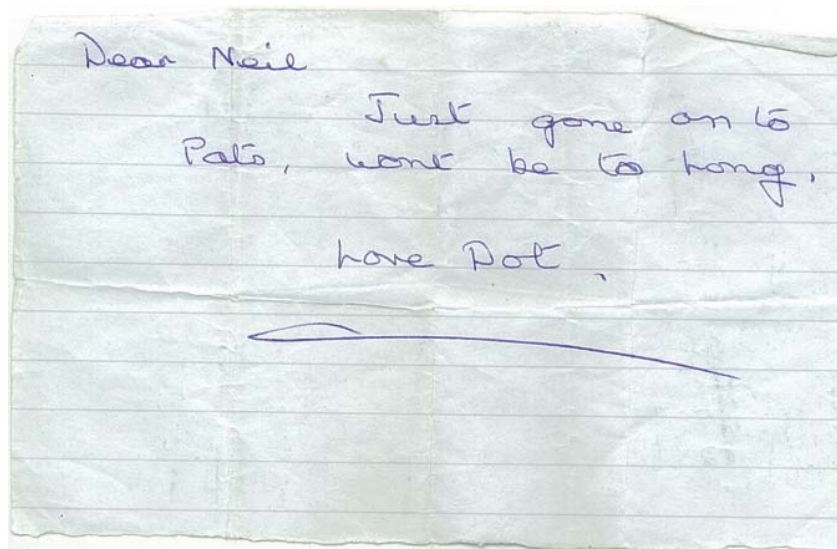 Dear Neil
Just gone on to
Pats, wont be to Long.
Love Dot.